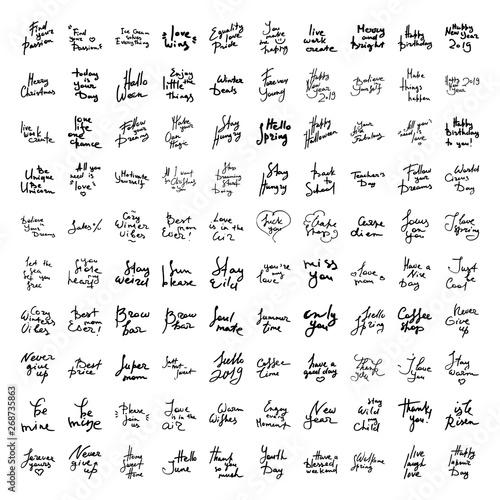 Find your passion
"Find your Passion"
Ice Cream Solves Everything
love wins
Equality Love Pride
You make me happy
live work create
Merry and bright
Happy Birthday
Happy New Year 2019
Merry Christmas
today is your Day
Hallo Ween
Enjoy little the things
Winter Deals
Forever Young
Happy New Year 2019
Believe Yourself
Make things happen
Happy New Year 2019
live work create
one life one chance
Follow your Dreams
Make Your Own Magic
Stay Hungry
Hello Spring
Happy Halloween
You are Fabulous
All you need is love
Happy Birthday to you!
Be Unique Be Unicorn
All you need is "love"
Motivate Yourself
All I want for Christmas is you
Stop Dreaming Start Doing
Stay Hungry
Back to School
Teacher's Day
Follow your Dreams
World Circus Day
Believe Your Dreams
Sales %
Cozy Winter Vibes
Best mom Ever!
Love is in the air
Fuck you
Escape shop
Carpe diem
Focus on you
I love Spring
let the sea set you free
You stole heart
Stay weird
Sun please
Stay Wild
you're my love
miss you
love mom
Have a Nice Day
Just be Cool
Cozy Winter Vibes
Best mom Ever!
Brow bar
Brow Bar
Soul mate
Summer time
only you
Hello Spring
Coffee shop
Never Give up
Never give up
Best price
Super mom
Just sweet
hello 2019
Coffee time
have a good day
Thank you
I love You
Stay warm
be mine
be mine
Please join us
Love is in the air
Warm Wishes
Enjoy every Moment
New Year
Stay Wild my Child
Thank you!
is Risen
Forever yours
Never give up
Home Sweet Home
Hello June
Thank you so much
Youth Day
Have a blessed weekend
Welcome Spring
live laugh love
Happy Labour Day
Adobe Stock | #268735863